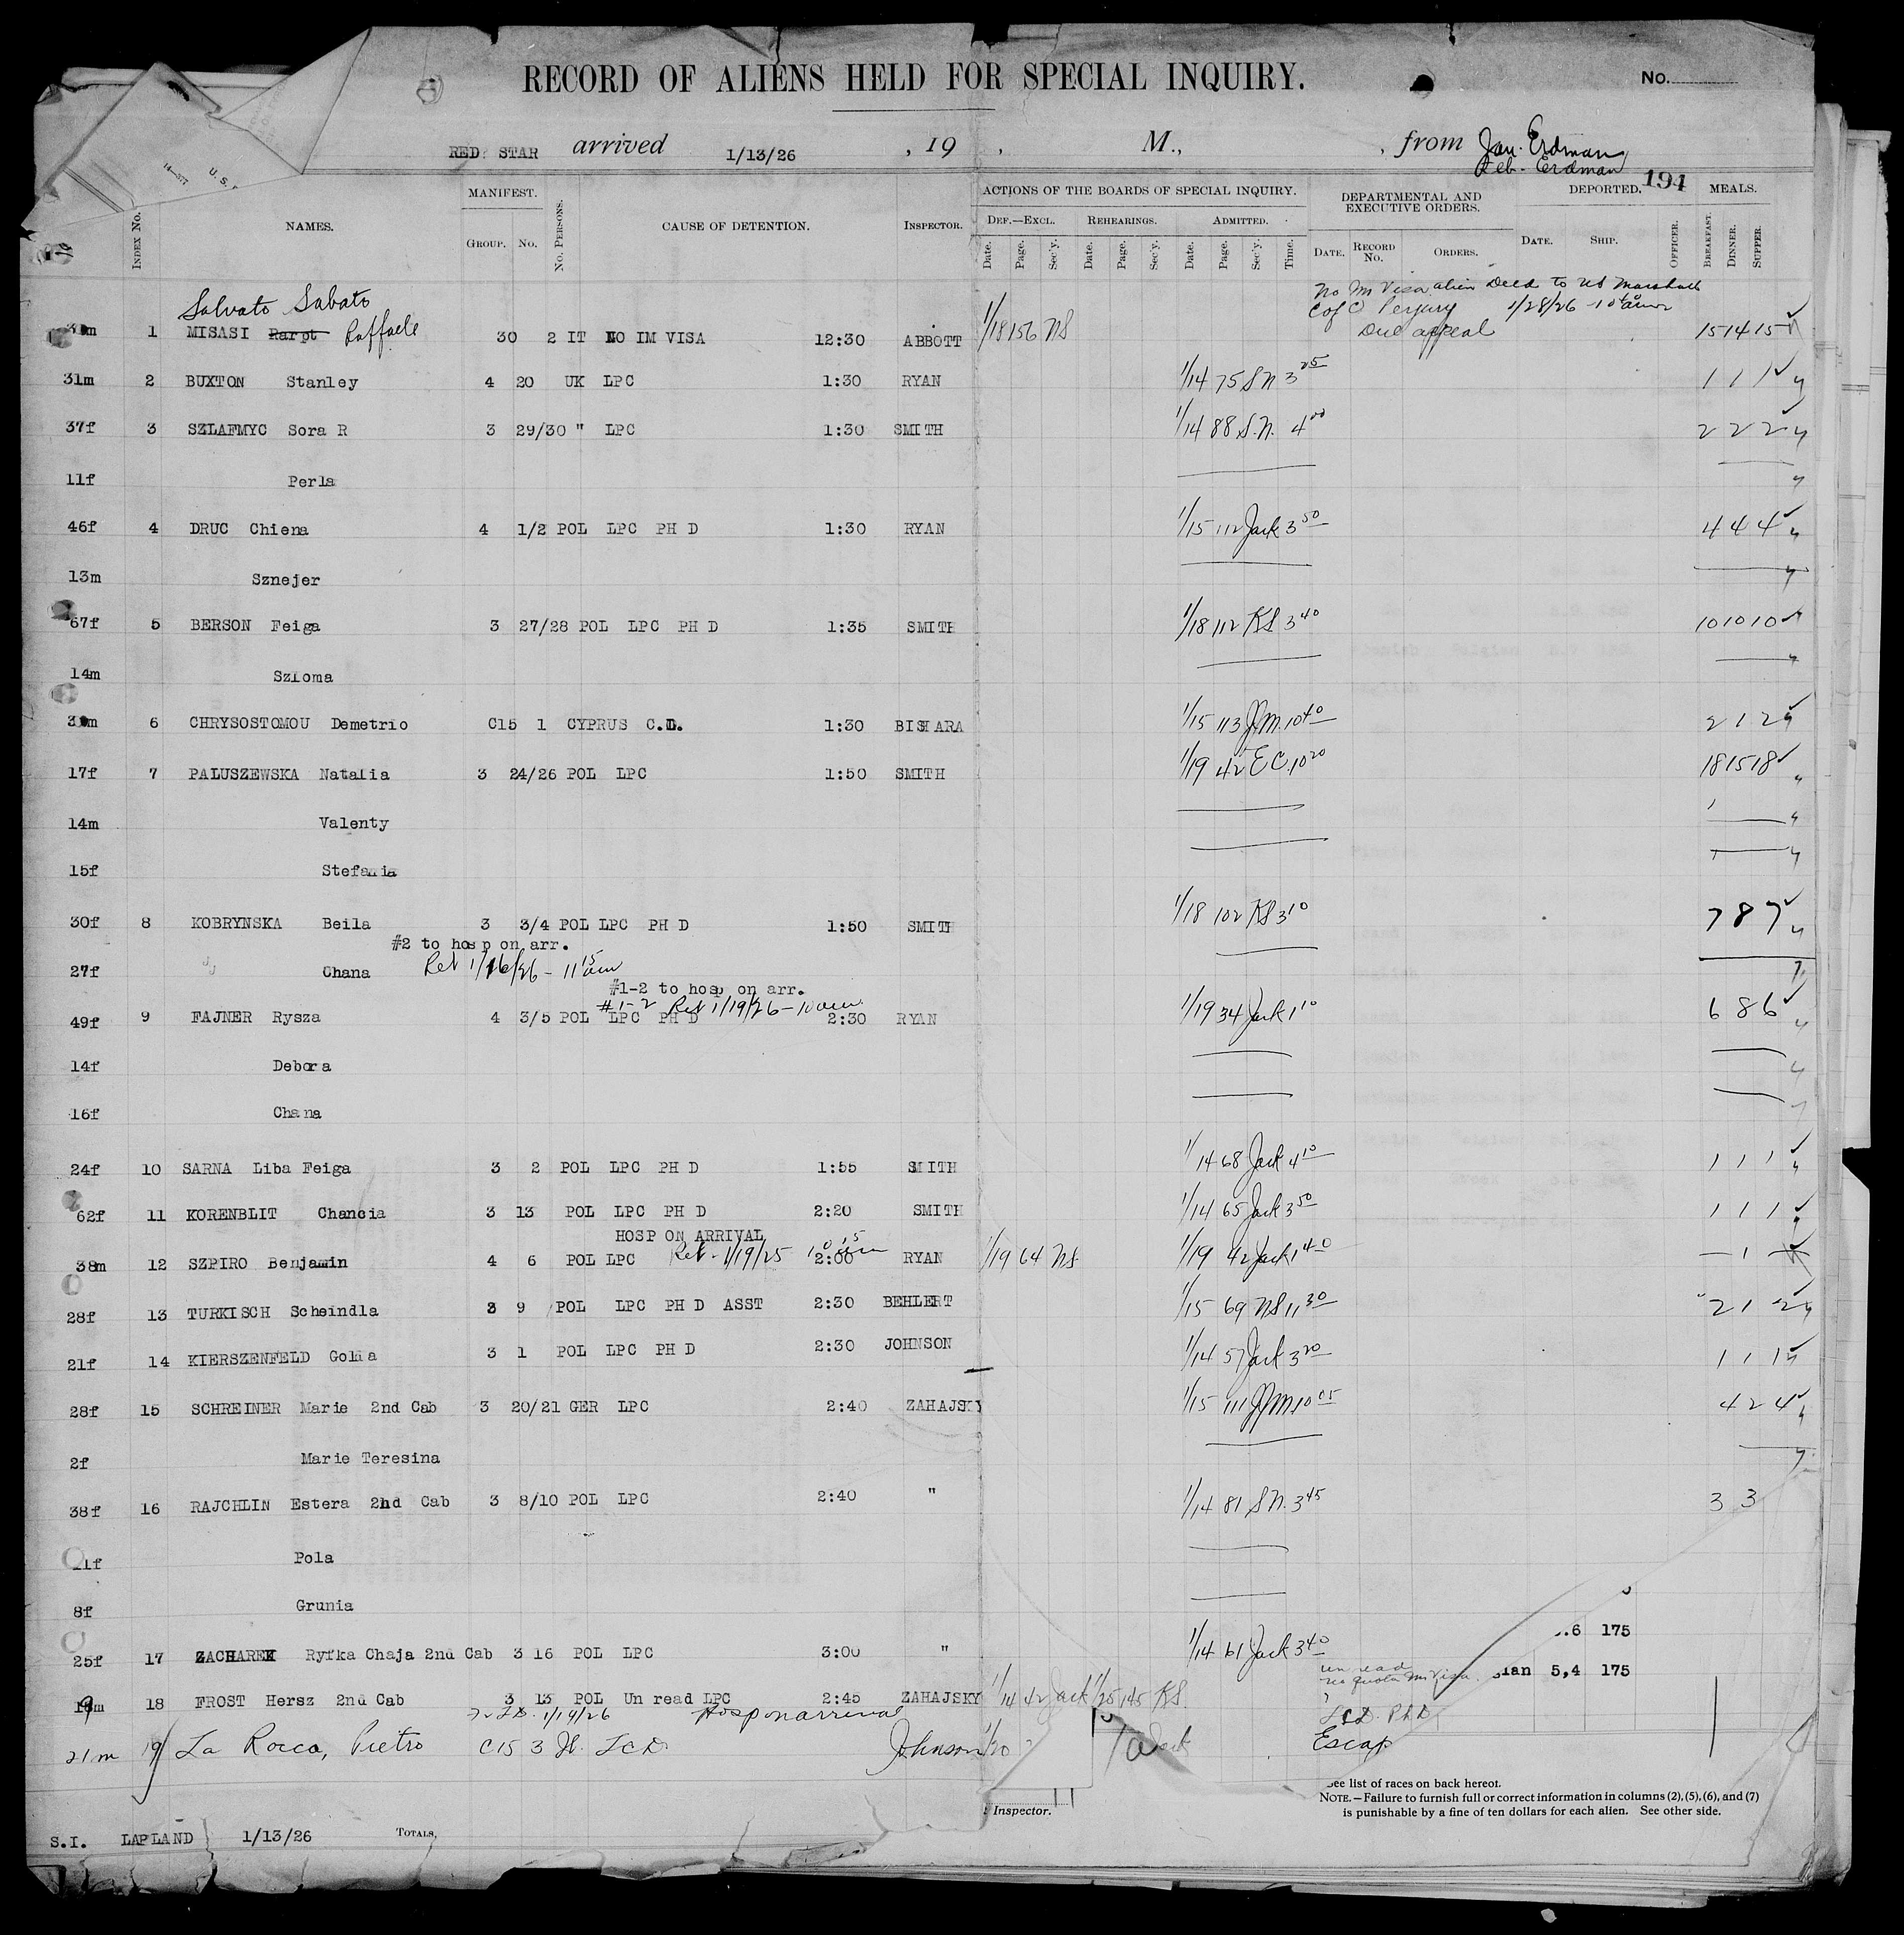 RECORD OF ALIENS HELD FOR SPECIAL INQUIRY.
No.
RED STAR arrived 1/13/26 , 19 , M., , from Jan. Erdman
Feb. Erdman
194
14—577 U. S.
INDEX No. NAMES. MANIFEST. GROUP. No. No. PERSONS. CAUSE OF DETENTION. INSPECTOR.
ACTIONS OF THE BOARDS OF SPECIAL INQUIRY. DEF.—EXCL. REHEARINGS. ADMITTED.
Date. Page. Sec'y. Date. Page. Sec'y. Date. Page. Sec'y. Time.
DEPARTMENTAL AND EXECUTIVE ORDERS. DATE. RECORD No. ORDERS.
DEPORTED. DATE. SHIP. OFFICER. MEALS. BREAKFAST. DINNER. SUPPER.
Salvato Sabato
No Im Visa alien Deld to US Marshall
C of C Perjury 1/28/26 -10
Due appeal
1 MISASI Raffaele 30 2 IT NO IM VISA 12:30 ABBOTT 1/18 156 NS 15 14 15
31m 2 BUXTON Stanley 4 20 UK LPC 1:30 RYAN 1/14 75 SN 3 25 1 1 1
37f 3 SZLAFMYC Sora R 3 29/30 " LPC 1:30 SMITH 1/14 88 S.N. 4 00 2 2 2
11f Perla
46f 4 DRUC Chiena 4 1/2 POL LPC PH D 1:30 RYAN 1/15 112 Jack 3 50 4 4 4
13m Sznejer
67f 5 BERSON Feiga 3 27/28 POL LPC PH D 1:35 SMITH 1/18 112 KS 3 40 10 10 10
14m Szloma
6 CHRYSOSTOMOU Demetrio C15 1 CYPRUS C.D. 1:30 BISHARA 1/15 113 JM 10 40 2 1 2
17f 7 PALUSZEWSKA Natalia 3 24/26 POL LPC 1:50 SMITH 1/19 42 EC 10 20 18 15 18
14m Valenty
15f Stefania
30f 8 KOBRYNSKA Beila 3 3/4 POL LPC PH D 1:50 SMITH 1/18 102 KS 3 10 7 8 7
#2 to hosp on arr.
27f Chana Ret 1/16/26 - 11 15 am
#1-2 to hosp on arr.
#1-2 Ret 1/19/26 - 10 am
49f 9 FAJNER Rysza 4 3/5 POL LPC PH D 2:30 RYAN 1/19 34 Jack 1 10 6 8 6
14f Debora
16f Chana
24f 10 SARNA Liba Feiga 3 2 POL LPC PH D 1:55 SMITH 1/14 68 Jack 4 10 1 1 1
62f 11 KORENBLIT Chancia 3 13 POL LPC PH D 2:20 SMITH 1/14 65 Jack 3 50 1 1 1
HOSP ON ARRIVAL
38m 12 SZPIRO Benjamin 4 6 POL LPC Ret. 1/19/25 10 15 am 2:00 RYAN 1/19 64 NS 1/19 42 Jack 1 40 — 1
28f 13 TURKISCH Scheindla 3 9 POL LPC PH D ASST 2:30 BEHLERT 1/15 69 NS 11 30 2 1 2
21f 14 KIERSZENFELD Golda 3 1 POL LPC PH D 2:30 JOHNSON 1/14 57 Jack 3 20 1 1 1
28f 15 SCHREINER Marie 2nd Cab 3 20/21 GER LPC 2:40 ZAHAJSKY 1/15 111 JM 10 05 4 2 4
2f Marie Teresina
38f 16 RAJCHLIN Estera 2nd Cab 3 8/10 POL LPC 2:40 " 1/14 81 SN. 3 45 3 3
Pola
8f Grunia
.6 175
25f 17 ZACHAREK Ryfka Chaja 2nd Cab 3 16 POL LPC 3:00 " 1/14 61 Jack 3 40
un read
no quota Im Visa. sian 5,4 175
18 FROST Hersz 2nd Cab 3 13 POL Un read LPC 2:45 ZAHAJSKY 1/14 42 Jack 1/25 145 KS
1/19/26 Hosp on arrival
LCD. PhD
21m 19 La Rocca, Pietro C15 3 It. LCD Johnson 1/20 Jack Escap
See list of races on back hereof.
NOTE.—Failure to furnish full or correct information in columns (2), (5), (6), and (7)
is punishable by a fine of ten dollars for each alien. See other side.
Inspector.
S.I. LAPLAND 1/13/26 TOTALS,